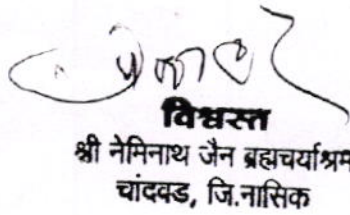 विश्वस्त
श्री नेमिनाथ जैन ब्रह्मचर्याश्रम
चांदवड, जि.नासिक